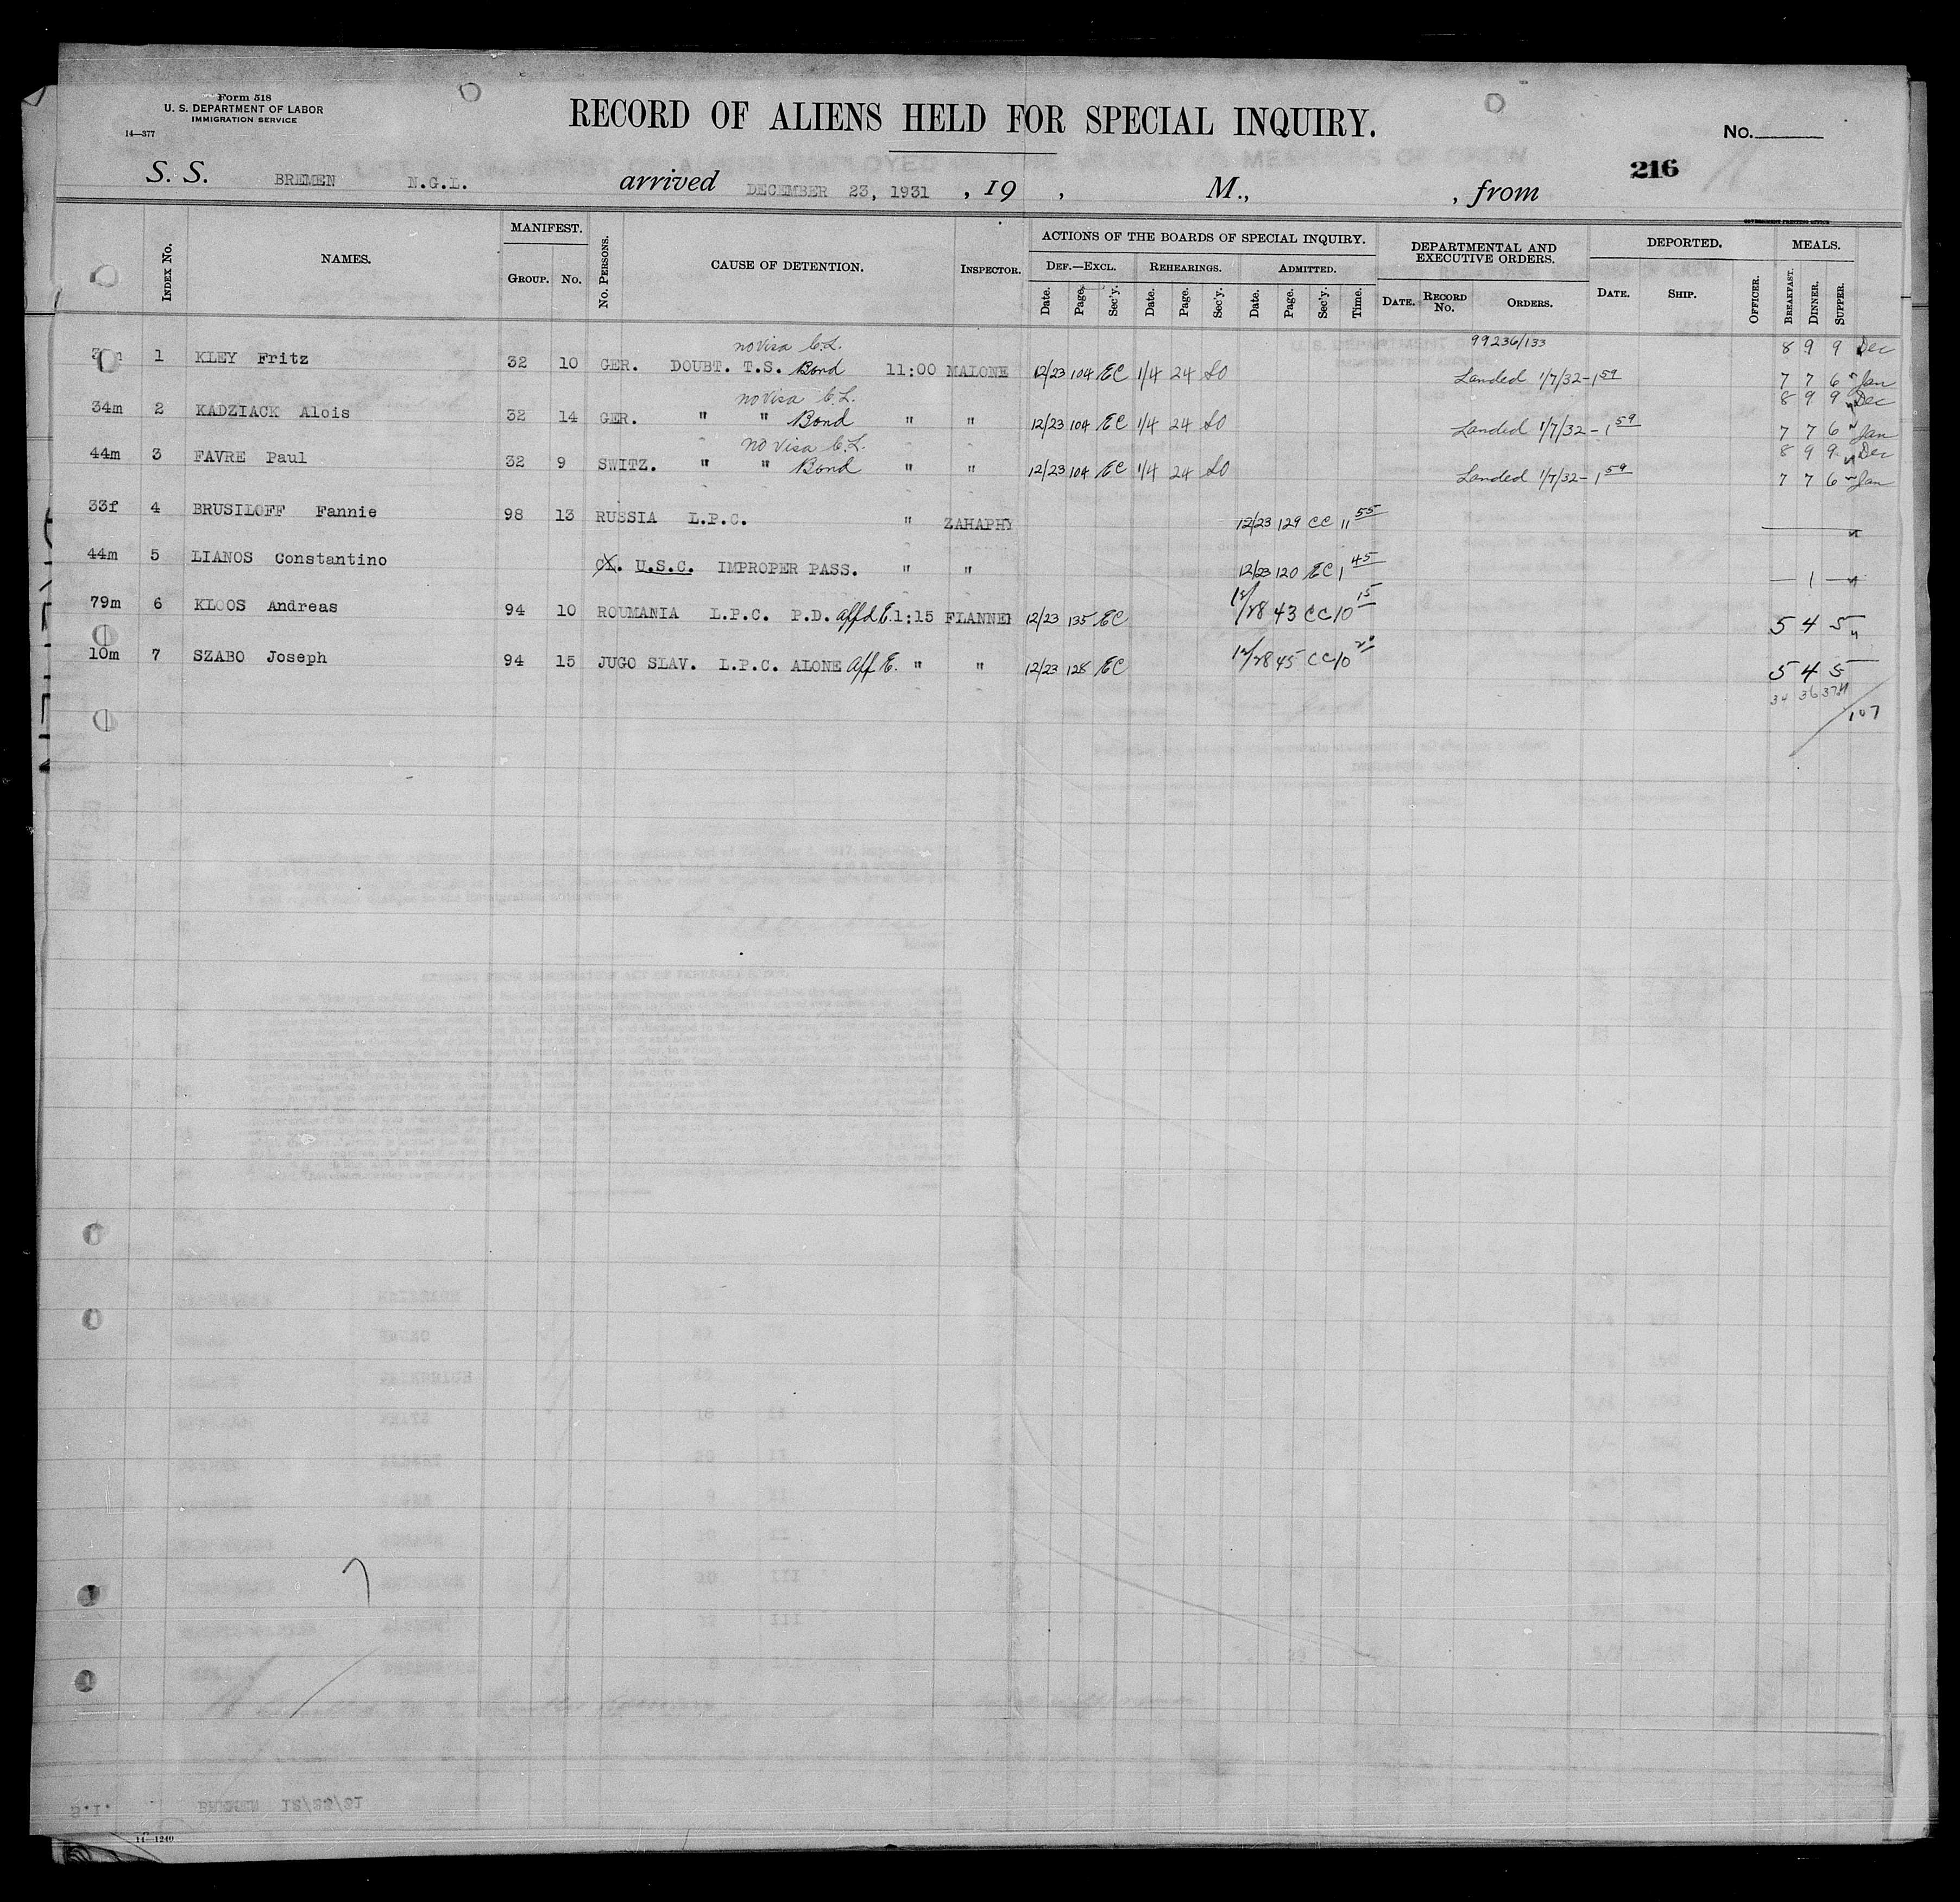 Form 518
U. S. DEPARTMENT OF LABOR
IMMIGRATION SERVICE
14—377
RECORD OF ALIENS HELD FOR SPECIAL INQUIRY.
No.
216
S. S. BREMEN N.G.L. arrived DECEMBER 23, 1931 , 19 , M., , from
GOVERNMENT PRINTING OFFICE
MANIFEST. ACTIONS OF THE BOARDS OF SPECIAL INQUIRY. DEPARTMENTAL AND EXECUTIVE ORDERS. DEPORTED. MEALS.
Index No. NAMES. Group. No. No. Persons. CAUSE OF DETENTION. Inspector. Def.—Excl. Rehearings. Admitted.
Date. Page. Sec'y. Date. Page. Sec'y. Date. Page. Sec'y. Time. Date. Record No. Orders. Date. Ship. Officer. Breakfast. Dinner. Supper.
no visa C.L. 99236/133 8 9 9 Dec
1 KLEY Fritz 32 10 GER. DOUBT. T.S. Bond 11:00 MALONE 12/23 104 EC 1/4 24 SO Landed 1/7/32-1 59 7 7 6 Jan
no visa C.L. 8 9 9 Dec
34m 2 KADZIACK Alois 32 14 GER. " " Bond " " 12/23 104 EC 1/4 24 SO Landed 1/7/32-1 59 7 7 6 Jan
no visa C.L. 8 9 9 Dec
44m 3 FAVRE Paul 32 9 SWITZ. " " Bond " " 12/23 104 EC 1/4 24 SO Landed 1/7/32-1 59 7 7 6 Jan
33f 4 BRUSILOFF Fannie 98 13 RUSSIA L.P.C. " ZAHAPHY 12/23 129 CC 11 55
44m 5 LIANOS Constantino U.S.C. IMPROPER PASS. " " 12/23 120 EC 1 45 — 1 —
79m 6 KLOOS Andreas 94 10 ROUMANIA L.P.C. P.D. affd E.1:15 FLANNE 12/23 135 EC 12/28 43 CC 10 15 5 4 5
10m 7 SZABO Joseph 94 15 JUGO SLAV. L.P.C. ALONE Aff E. " " 12/23 128 EC 12/28 45 CC 10 20 5 4 5
34 36 37
107
7
S.I. BREMEN 12/23/31
14—1240